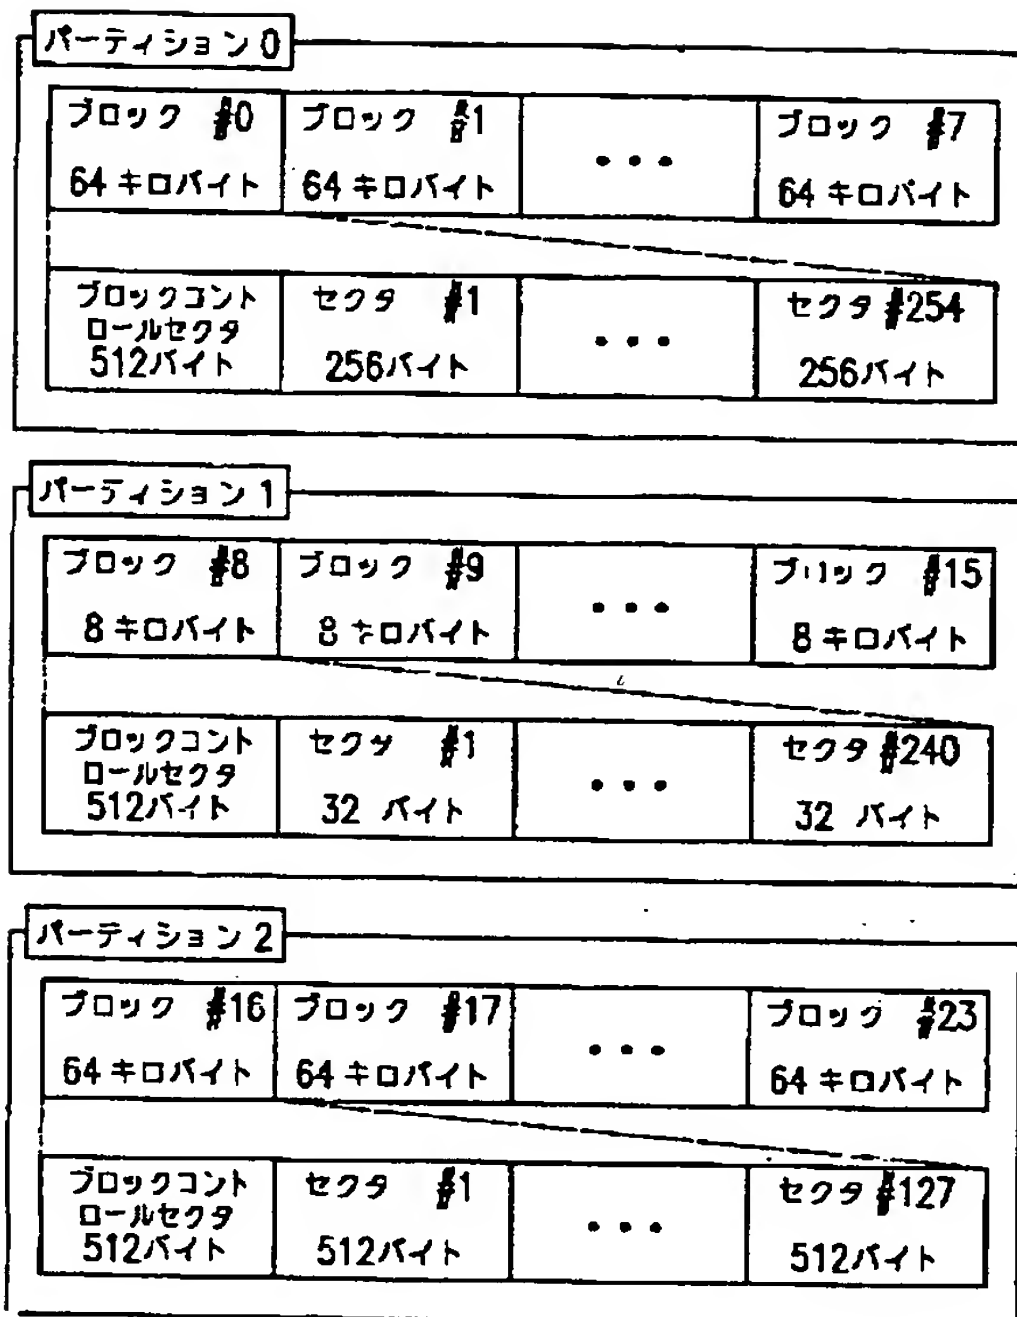 パーティション 0
ブロック #0
ブロック #1
• • •
ブロック #7
64 キロバイト
64 キロバイト
64 キロバイト
ブロックコント
ロールセクタ
512バイト
セクタ #1
256バイト
• • •
セクタ #254
256バイト
パーティション 1
ブロック #8
ブロック #9
• • •
ブロック #15
8 キロバイト
8 キロバイト
8 キロバイト
ブロックコント
ロールセクタ
512バイト
セクタ #1
32 バイト
• • •
セクタ #240
32 バイト
パーティション 2
ブロック #16
ブロック #17
• • •
ブロック #23
64 キロバイト
64 キロバイト
64 キロバイト
ブロックコント
ロールセクタ
512バイト
セクタ #1
512バイト
• • •
セクタ #127
512バイト